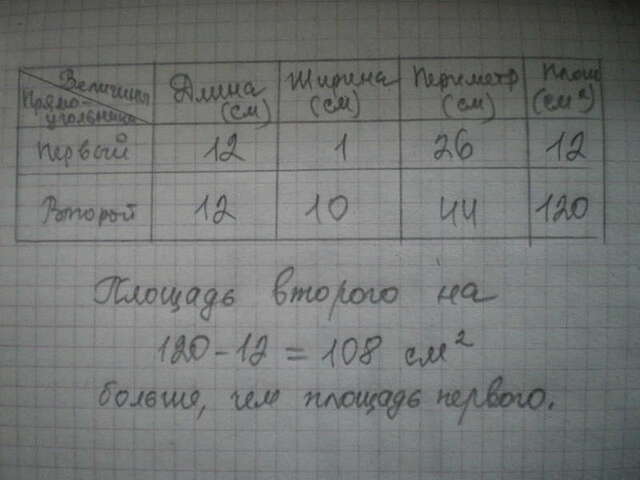 Величины Длина Ширина Периметр Площ
Прямо- (см) (см) (см) (см²)
угольники
Первый 12 1 26 12
Второй 12 10 44 120
Площадь второго на
120-12 = 108 см²
больше, чем площадь первого.